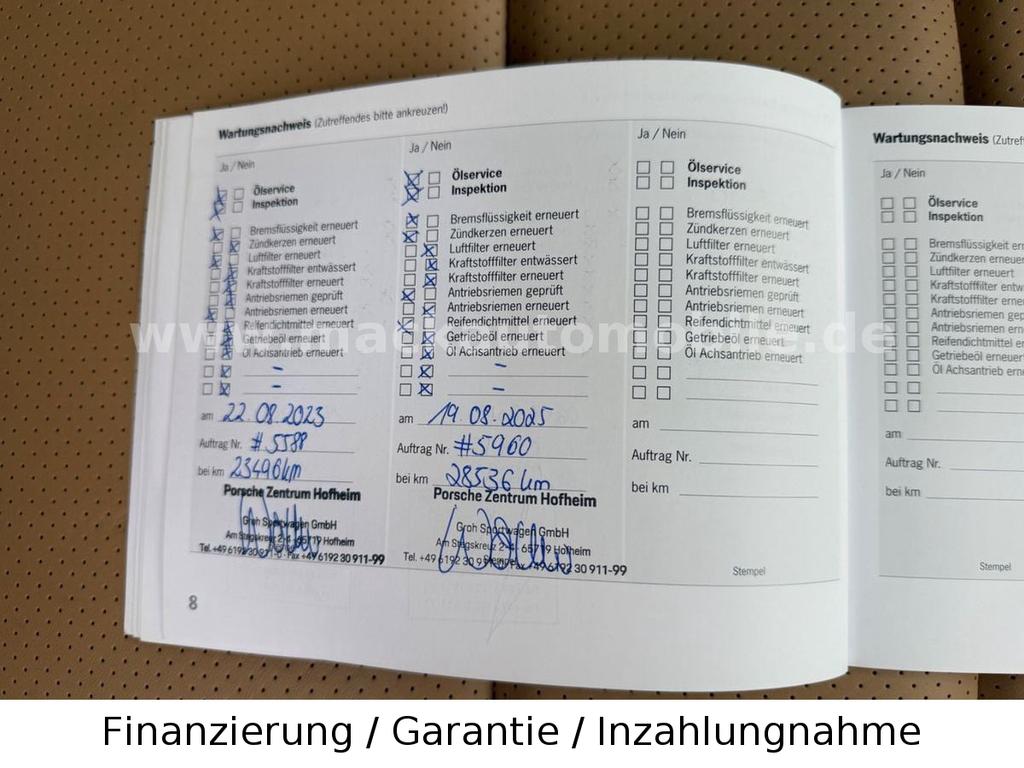 Wartungsnachweis (Zutreffendes bitte ankreuzen!)
Ja / Nein
Ölservice
Inspektion
Bremsflüssigkeit erneuert
Zündkerzen erneuert
Luftfilter erneuert
Kraftstofffilter entwässert
Kraftstofffilter erneuert
Antriebsriemen geprüft
Antriebsriemen erneuert
Reifendichtmittel erneuert
Getriebeöl erneuert
Öl Achsantrieb erneuert
–
–
am 22.08.2023
Auftrag Nr. #5588
bei km 23496 km
Porsche Zentrum Hofheim
Groh Sportwagen GmbH
Am Stegskreuz 2-4 · 65719 Hofheim
Tel. +49 6192 30 911-0 · Fax +49 6192 30 911-99
8
Ja / Nein
Ölservice
Inspektion
Bremsflüssigkeit erneuert
Zündkerzen erneuert
Luftfilter erneuert
Kraftstofffilter entwässert
Kraftstofffilter erneuert
Antriebsriemen geprüft
Antriebsriemen erneuert
Reifendichtmittel erneuert
Getriebeöl erneuert
Öl Achsantrieb erneuert
–
–
am 19.08.2025
Auftrag Nr. #5960
bei km 28536 km
Porsche Zentrum Hofheim
Groh Sportwagen GmbH
Am Stegskreuz 2-4 · 65719 Hofheim
Tel. +49 6192 30 Stempel Fax +49 6192 30 911-99
Ja / Nein
Ölservice
Inspektion
Bremsflüssigkeit erneuert
Zündkerzen erneuert
Luftfilter erneuert
Kraftstofffilter entwässert
Kraftstofffilter erneuert
Antriebsriemen geprüft
Antriebsriemen erneuert
Reifendichtmittel erneuert
Getriebeöl erneuert
Öl Achsantrieb erneuert
am
Auftrag Nr.
bei km
Stempel
Wartungsnachweis (Zutref
Ja / Nein
Ölservice
Inspektion
Bremsflüssigkeit ern
Zündkerzen erneue
Luftfilter erneuert
Kraftstofffilter entw
Kraftstofffilter erne
Antriebsriemen gep
Antriebsriemen ern
Reifendichtmittel e
Getriebeöl erneuer
Öl Achsantrieb erne
am
Auftrag Nr.
bei km
Stempel
Finanzierung / Garantie / Inzahlungnahme